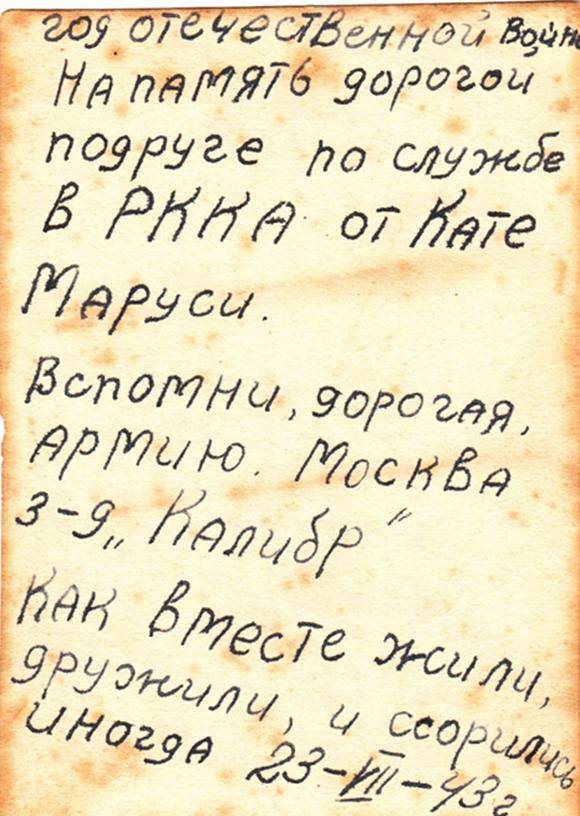 год отечественной войны
На память дорогой
подруге по службе
в РККА от Кате
Маруси.
Вспомни, дорогая,
армию. Москва
з-д „Калибр“
Как вместе жили,
дружили, и ссорились
иногда 23-VIII-43г